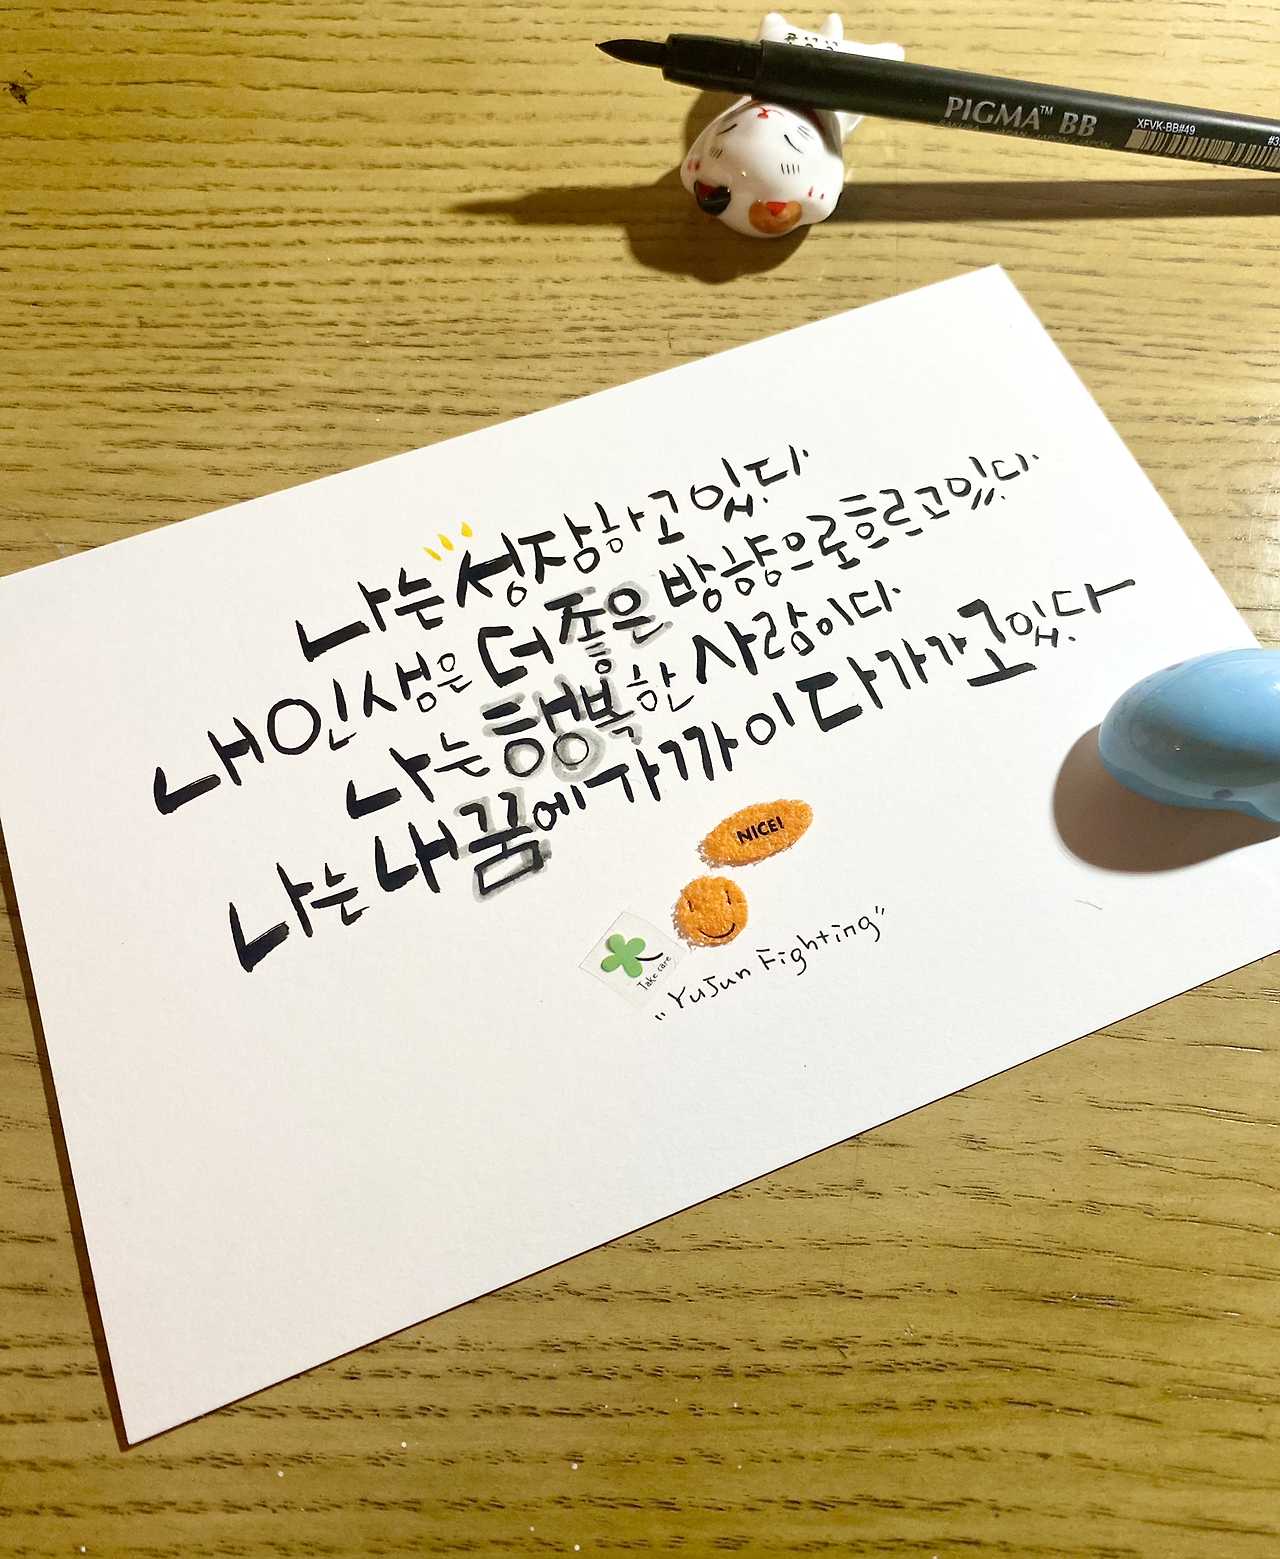 PIGMA™ BB
XFVK-BB#49
나는 성장하고 있다
내 인생은 더 좋은 방향으로 흐르고 있다
나는 행복한 사람이다
나는 내 꿈에 가까이 다가가고 있다
NICE!
Take care
"YuJun Fighting"